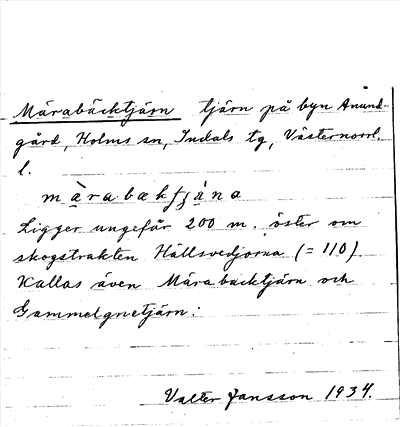 Märabäcktjärn tjärn på byn Anund-
gård, Holms sn, Indals tg, Västernorrl.
l.
Ligger ungefär 200 m. öster om
skogstrakten Hällsvedjorna (= 110).
Kallas även Märabacktjärn och
Valter Jansson 1934.